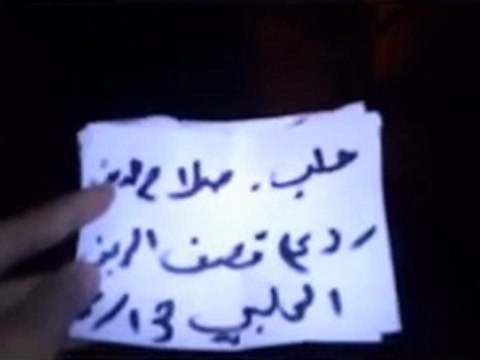 حلب . صلاح الدين
رد على قصف الريف
الحلبي 13 /